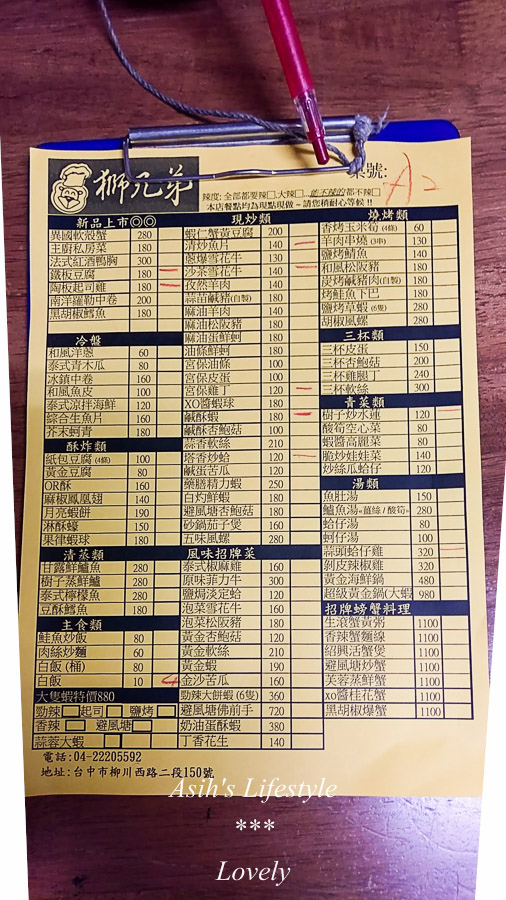 獅兄弟
桌號: A2
辣度: 全部都要辣□.大辣□. 能不辣的都不辣□
本店餐點均為現點現做~請您稍耐心等候!!
新品上市◎◎
異國軟殼蟹 280
主廚私房菜 180
法式紅酒鴨胸 300
鐵板豆腐 180
陶板起司雞 180
南洋羅勒中卷 200
黑胡椒鱈魚 180
冷盤
和風洋蔥 60
泰式青木瓜 80
冰鎮中卷 160
和風魚皮 100
泰式涼拌海鮮 120
綜合生魚片 160
芥末蚵青 180
酥炸類
紙包豆腐 (4條) 100
黃金豆腐 80
OR酥 160
麻椒鳳凰翅 140
月亮蝦餅 190
淋酥蠔 150
果律蝦球 180
清蒸類
甘露鮮鱸魚 280
樹子蒸鮮鱸 280
泰式檸檬魚 280
豆酥鱈魚 180
主食類
鮭魚炒飯 80
肉絲炒麵 60
白飯 (桶) 80
白飯 10
大隻蝦特價880
勁辣□起司□ 鹽烤□
香辣□ 避風塘□
蒜蓉大蝦
現炒類
蝦仁蟹黃豆腐 200
清炒魚片 140
蔥爆雪花牛 130
沙茶雪花牛 140
孜然羊肉 140
蒜苗鹹豬(自製) 180
麻油羊肉 140
麻油松阪豬 180
麻油蛋鮮蚵 180
油條鮮蚵 180
宮保油條 100
宮保皮蛋 100
宮保雞丁 120
XO醬蝦球 180
鹹酥蝦 180
鹹酥杏鮑菇 100
蒜香軟絲 210
塔香炒蛤 120
鹹蛋苦瓜 120
藥膳精力蝦 250
白灼鮮蝦 180
避風塘杏鮑菇 180
砂鍋茄子煲 160
五味風螺 280
風味招牌菜
泰式椒麻雞 160
原味菲力牛 300
鹽焗淡定蛤 120
泡菜雪花牛 160
泡菜松阪豬 180
黃金杏鮑菇 120
黃金軟絲 210
黃金蝦 190
金沙苦瓜 160
勁辣大餅蝦 (6隻) 360
避風塘佛前手 720
奶油蛋酥蝦 380
丁香花生 140
燒烤類
香烤玉米筍 (4條) 60
羊肉串燒 (3串) 130
鹽烤鯖魚 140
和風松阪豬 180
炭烤鹹豬肉(自製) 180
烤鮭魚下巴 180
鹽烤草蝦 (6隻) 280
胡椒風螺 280
三杯類
三杯皮蛋 150
三杯杏鮑菇 200
三杯雞腿丁 240
三杯軟絲 300
青菜類
樹子炒水蓮 120
酸筍空心菜 80
蝦醬高麗菜 80
脆炒娃娃菜 140
炒絲瓜蛤仔 120
湯類
魚肚湯 150
鱸魚湯<薑絲/酸筍> 280
蛤仔湯 80
蚵仔湯 100
蒜頭蛤仔雞 320
剝皮辣椒雞 320
黃金海鮮鍋 480
超級黃金鍋(大蝦 980
招牌螃蟹料理
生滾蟹黃粥 1100
香辣蟹麵線 1100
紹興活蟹煲 1100
避風塘炒蟹 1100
芙蓉蒸鮮蟹 1100
xo醬桂花蟹 1100
黑胡椒爆蟹 1100
電話:04-22205592
地址:台中市柳川西路二段150號
Asih's Lifestyle
***
Lovely